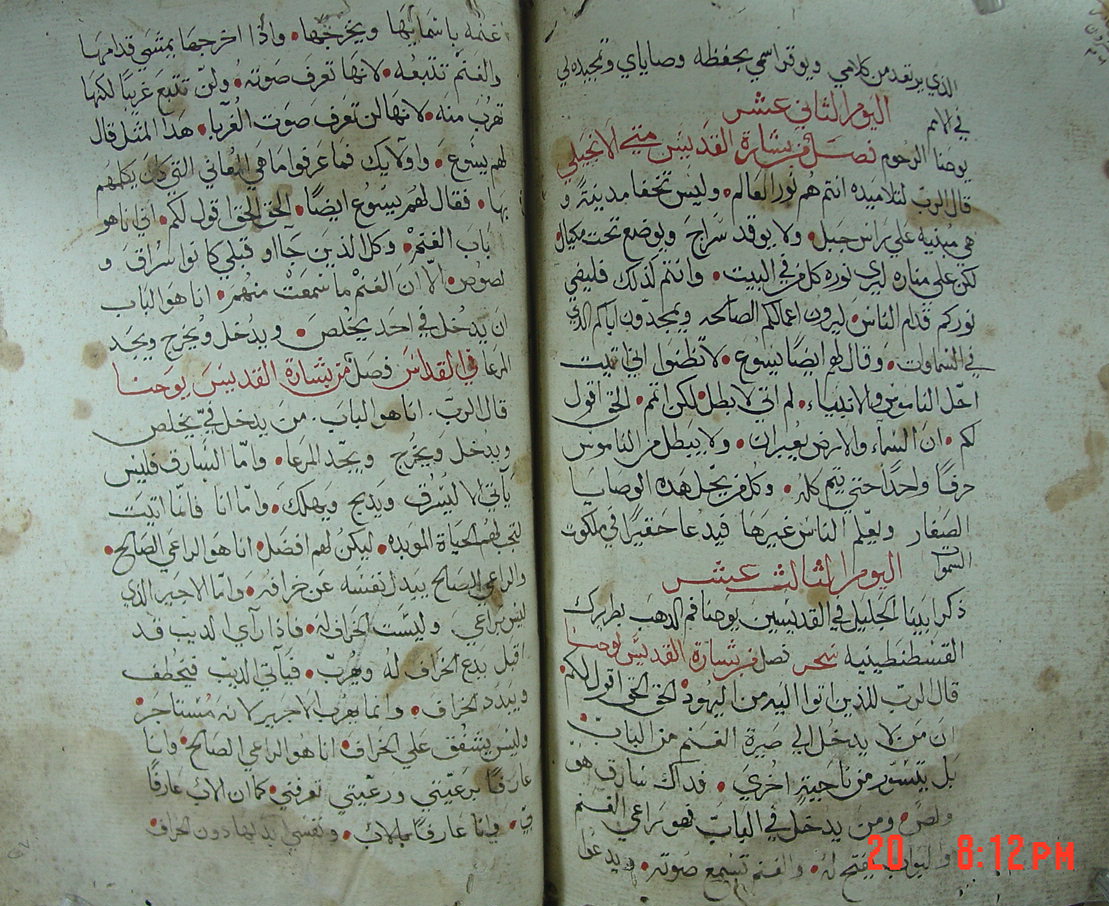 الذي يرتعد من كلامي ويوقر اسمي بحفظه وصاياي وتمجيده لي
في الامم
اليوم الثاني عشر
يوحنا الرحوم فصل من بشارة القديس متي الانجيلي
قال الرب لتلاميذه انتم هم نور العالم • وليس تخفا مدينة و
هي مبنيه علي راس جبل • ولا يوقد سراج ويوضع تحت مكيال
لكن علي مناره ليري نوره كل من في البيت • وانتم لذلك فليضي
نوركم قدام الناس • ليرون اعمالكم الصالحه ويمجدون اباكم الذي
في السماوات • وقال لهم ايضا يسوع • لا تظنوا اني اتيت
احل الناموس والانبياء • لم اتي لابطل لكن اتمم • الحق اقول
لكم • ان السماء والارض يعبران • ولا يبطل من الناموس
حرفًا واحدًا حتي يتم كله • وكل من يحل هذه الوصايا
الصغار ويعلم الناس غيرها فيدعا حقيرًا في ملكوت
السموات
اليوم الثالث عشر
ذكر ابينا الجليل في القديسين يوحنا فم الذهب بطريرك
القسطنطينيه سحر فصل من بشارة القديس يوحنا
قال الرب للذين اتوا اليه من اليهود • الحق الحق اقول لكم •
ان من لا يدخل الي صيرة الغنم من الباب •
بل يتسور من ناحيةٍ اخري • فذاك سارق هو
ولص • ومن يدخل في الباب فهو راعي الغنم
والبواب يفتح له • والغنم تسمع صوته • ويدعوا
20 8:12 PM
غنمه باسمايها ويخرجها • واذا اخرجها يمشي قدامها
والغنم تتبعه • لانها تعرف صوته • ولن تتبع غريبًا لكنها
تهرب منه • لانها لن تعرف صوت الغربا • هذا المثل قال
لهم يسوع • واولايك فما عرفوا ما هي المعاني التي كان يكلمهم
بها • فقال لهم يسوع ايضًا • الحق الحق اقول لكم • اني انا هو
باب الغنم • وكل الذين جااو قبلي كانوا سراق و
لصوص • الا ان الغنم ما سمعت منهم • انا هو الباب
ان يدخل في احد يخلص • ويدخل ويخرج ويجد
المرعا في القداس فصل من بشارة القديس يوحنا
قال الرب • انا هو الباب • من يدخل فيّ يخلص
ويدخل ويخرج ويجد المرعا • واما السارق فليس
ياتي الا ليسرق ويذبح ويهلك • واما انا فانما اتيت
لتجي لهم الحياة الموبده • ليكن لهم افضل • انا هو الراعي الصالح •
والراعي الصالح يبدل نفسه عن خرافه • واما الاجير الذي
ليس براعي وليست الخراف له • فاذا رآي الديب قد
اقبل يدع الخراف له وهرب • فياتي الديب فيخطف
ويبدد الخراف • وانما يهرب الاجير لانه مستاجر •
وليس يشفق علي الخراف • انا هو الراعي الصالح • وانا
عارفًا برعيتي ورعيتي تعرفني • كما ان الاب عارفًا
بي • وانا عارفًا بالاب • ونفسي ابدلها دون الخراف •